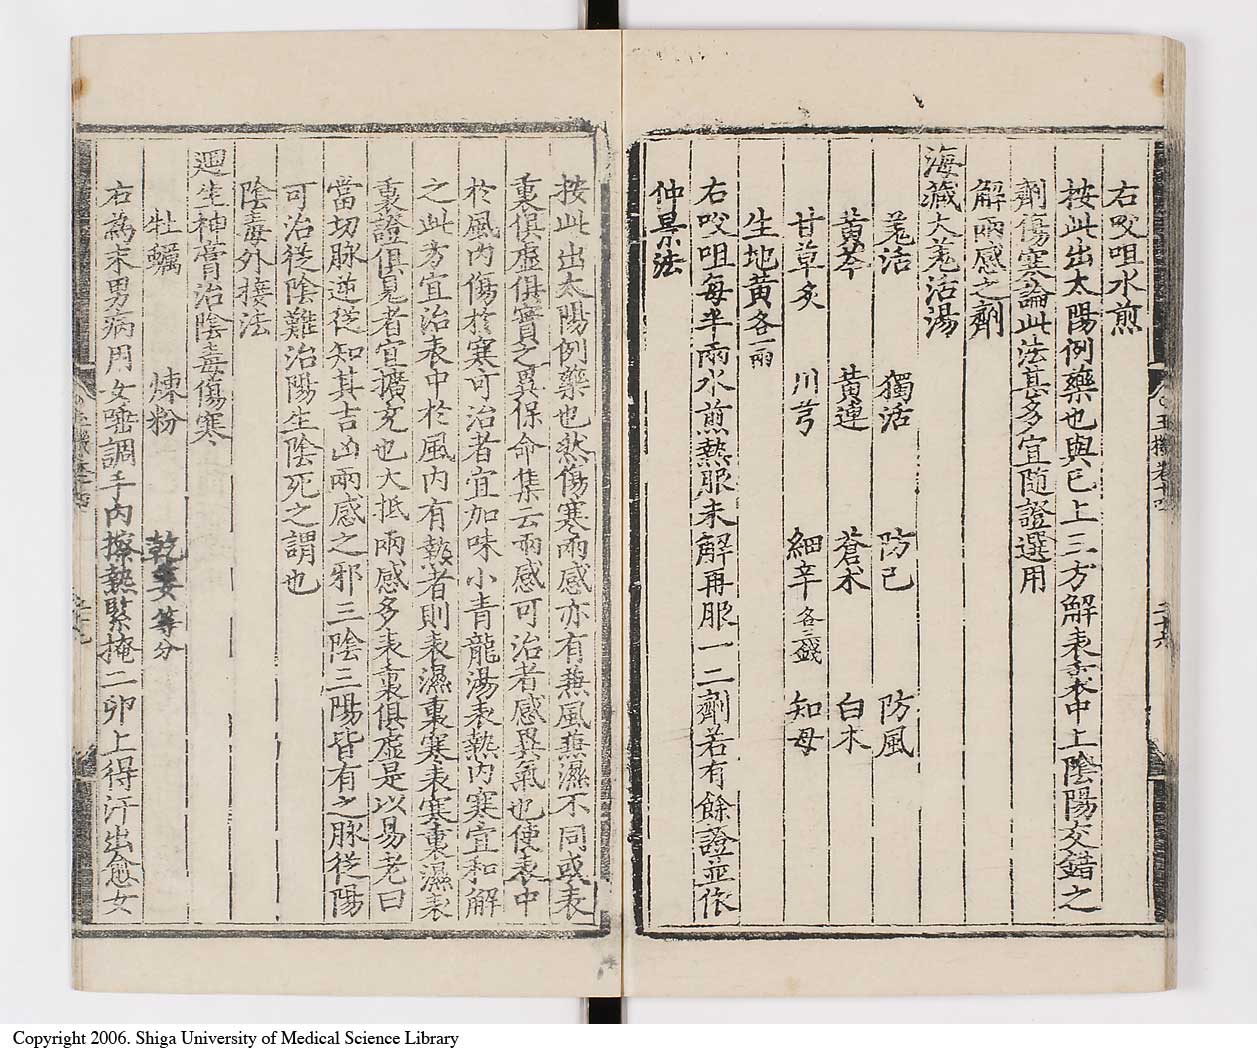 右㕮咀水煎
按此出太陽例藥也與已上三方解表本中上陰陽交錯之
劑傷寒論此法甚多宜随證選用
解兩感之劑
海藏大羌活湯
羌活 獨活 防己 防風
黃芩 黃連 蒼朮 白朮
甘草炙 川芎 細辛各三錢 知母
生地黃各一兩
右㕮咀每半兩水煎熱服未解再服一二劑若有餘證並依
仲景法
按此出太陽例藥也然傷寒兩感亦有兼風兼濕不同或表
裏俱虛俱實之異保命集云兩感可治者感異氣也使表中
於風內傷於寒可治者宜加味小青龍湯表熱內寒宜和解
之此方宜治表中於風內有熱者則表濕裏寒表寒裏濕表
裏證俱見者宜擴充也大抵兩感多表裏俱虛是以易老曰
當切脉逆從知其吉凶兩感之邪三陰三陽皆有之脉從陽
可治從陰難治陽生陰死之謂也
陰毒外接法
廻生神膏治陰毒傷寒
牡蠣 煉粉 乾姜等分
右為末男病用女唾調手內擦熱緊掩二卵上得汗出愈女
Copyright 2006. Shiga University of Medical Science Library